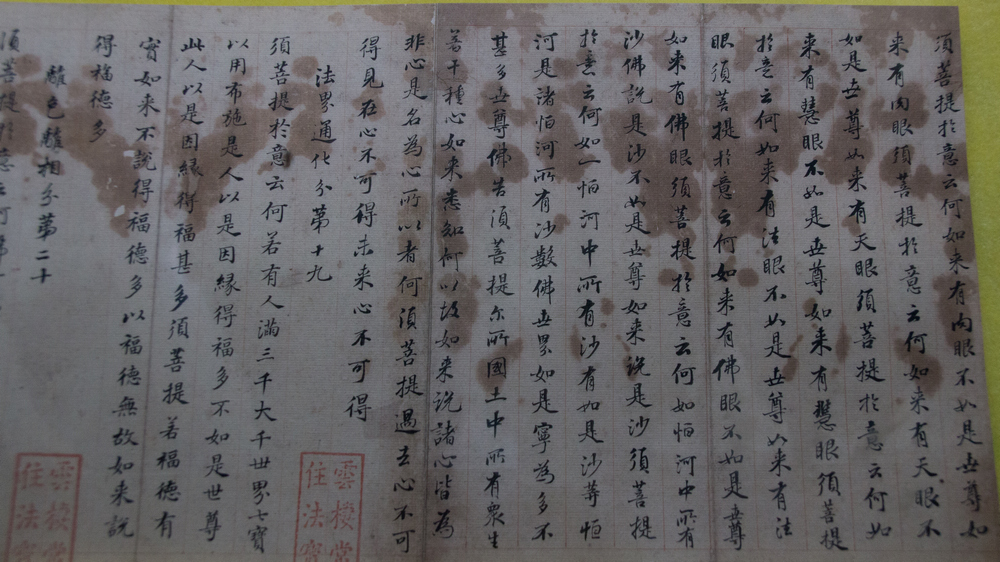 須菩提於意云何如来有肉眼不如是世尊如
来有肉眼須菩提於意云何如来有天眼不
如是世尊如来有天眼須菩提於意云何如
来有慧眼不如是世尊如来有慧眼須菩提
於意云何如来有法眼不如是世尊如来有法
眼須菩提於意云何如来有佛眼不如是世尊
如来有佛眼須菩提於意云何如恒河中所有
沙佛說是沙不如是世尊如来說是沙須菩提
於意云何如一恒河中所有沙有如是沙等恒
河是諸恒河所有沙數佛世界如是寧為多不
甚多世尊佛告須菩提尔所國土中所有衆生
若干種心如来悉知何以故如来說諸心皆為
非心是名為心所以者何須菩提過去心不可
得見在心不可得未来心不可得
法界通化分第十九
須菩提於意云何若有人滿三千大千世界七寶
以用布施是人以是因緣得福多不如是世尊
此人以是因緣得福甚多須菩提若福德有
實如来不說得福德多以福德無故如来說
得福德多
離色離相分第二十
須菩提於意云何